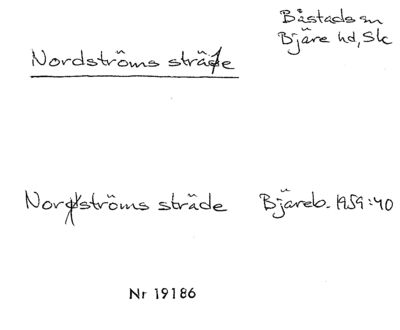 Båstads sn
Bjäre hd, Sk
Nordströms sträte
Norrströms sträde Bjäreb. 1959:40
Nr 19186